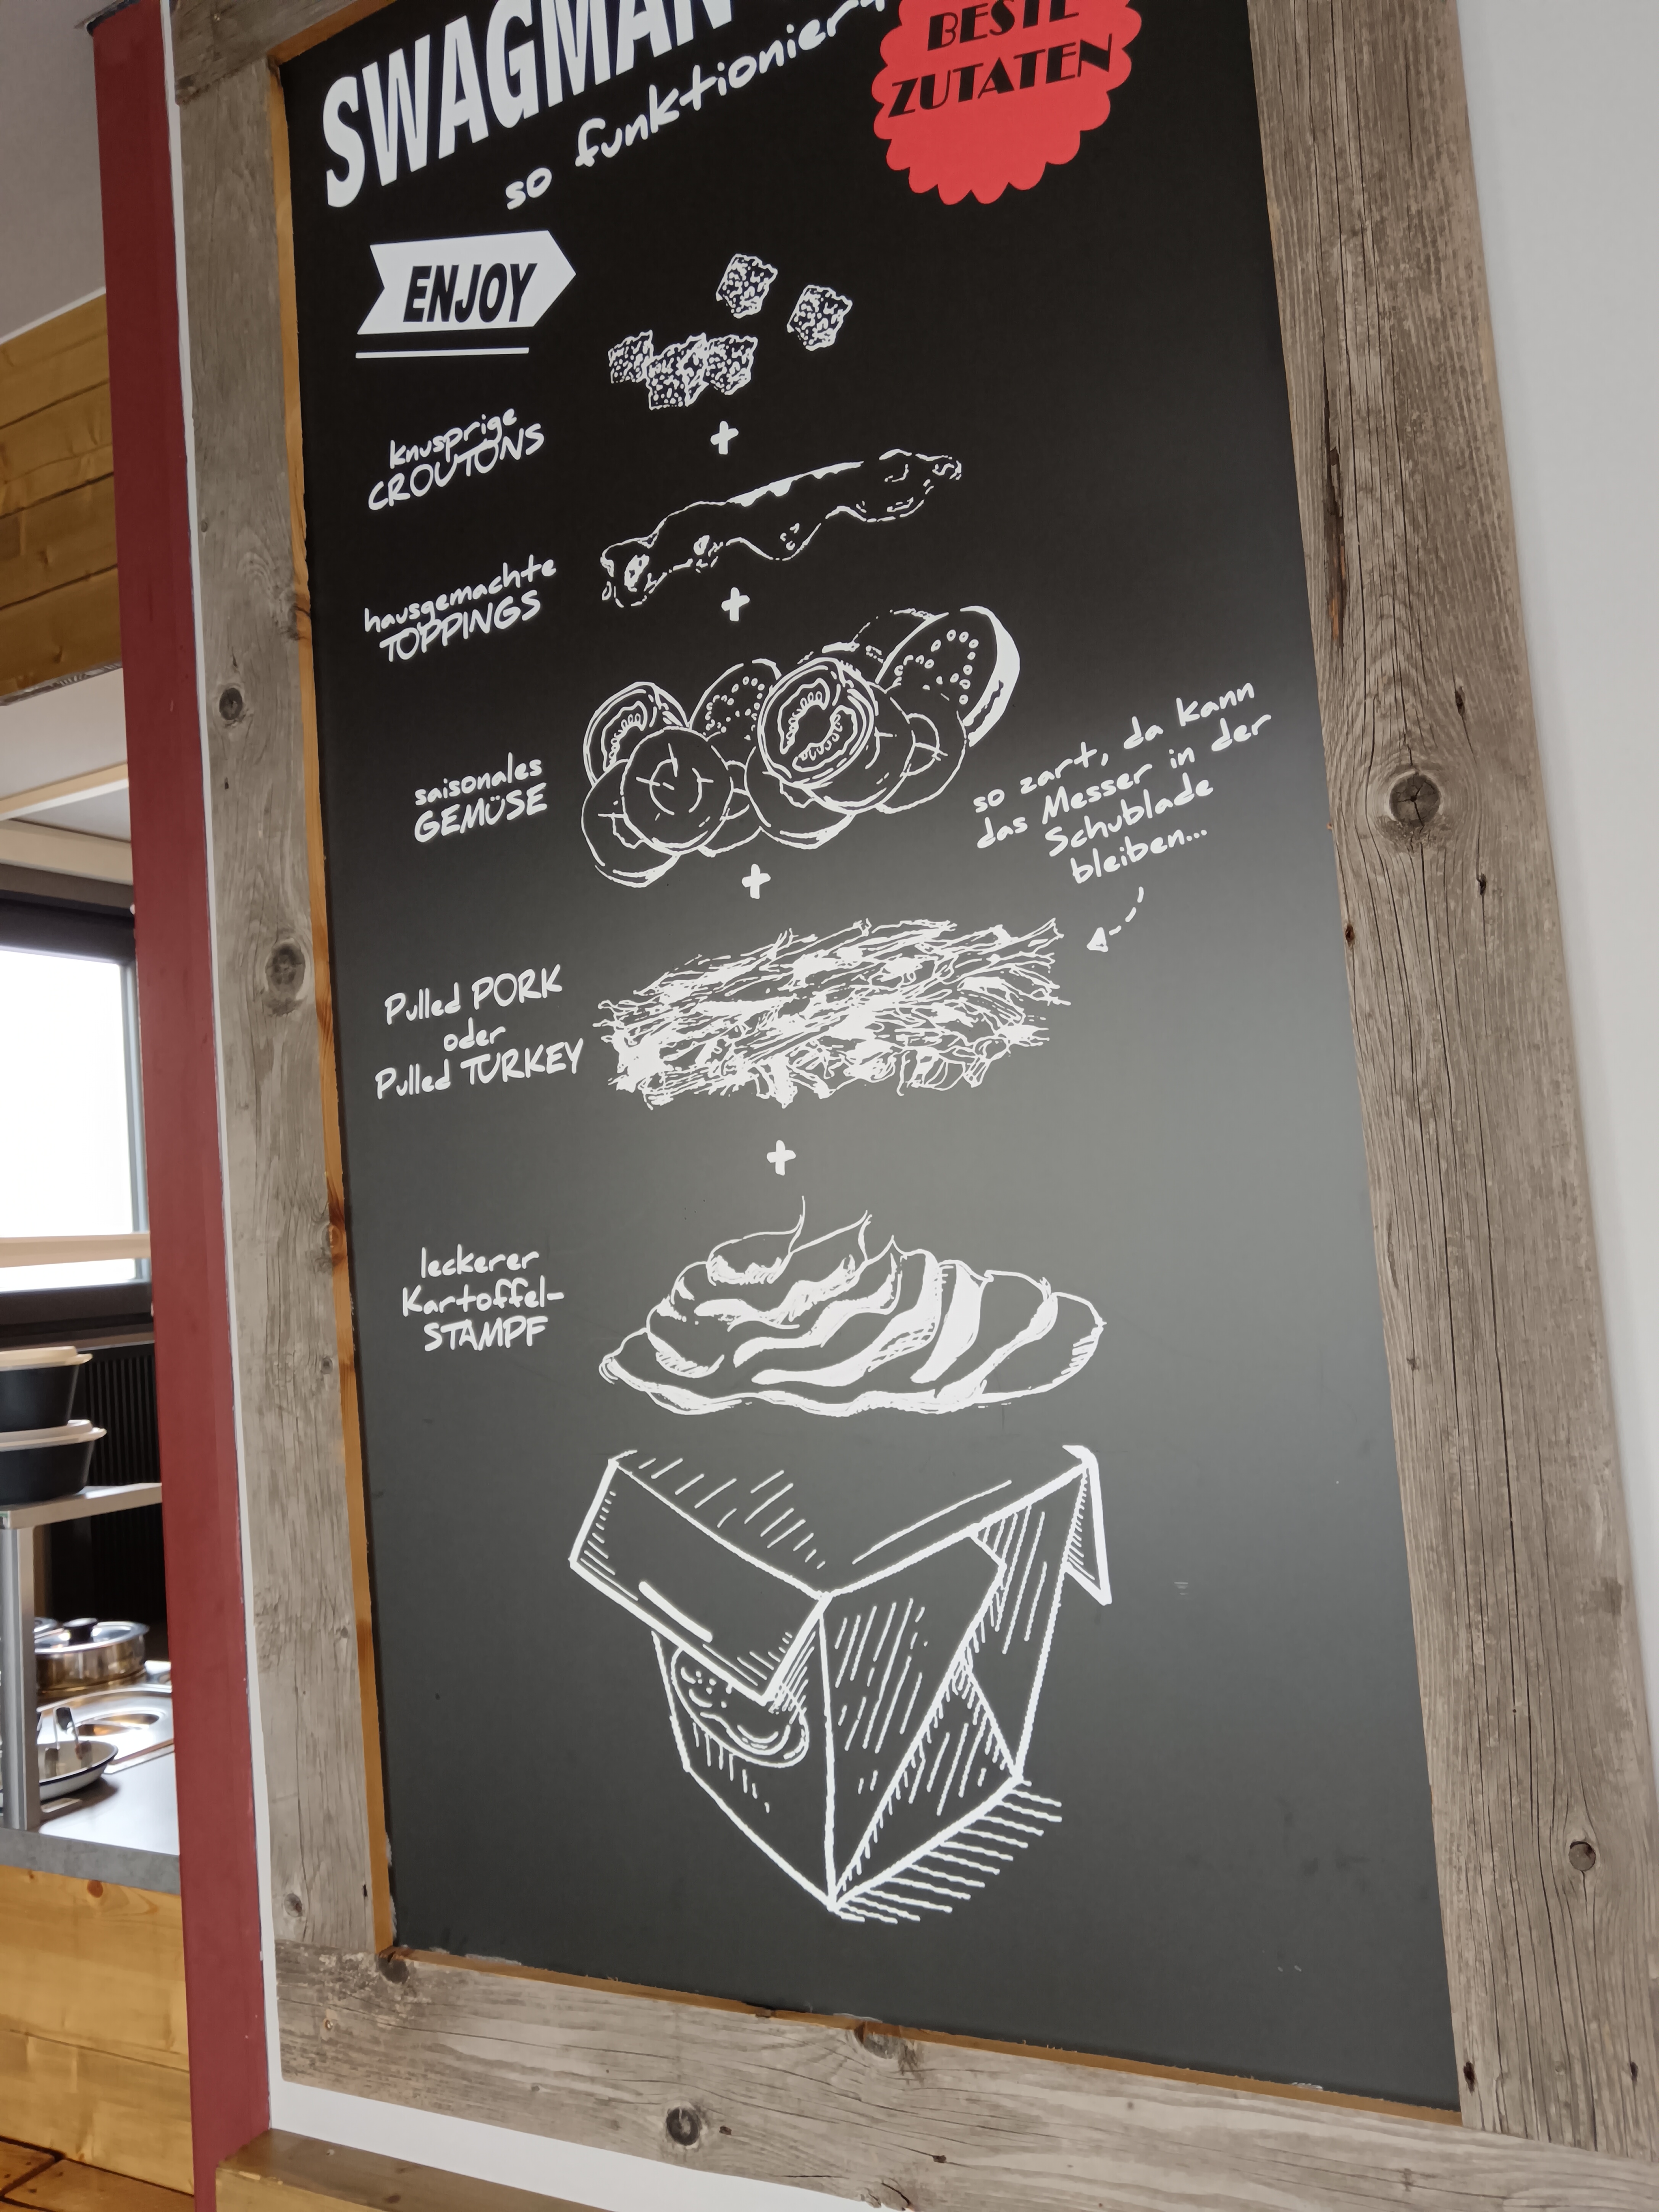 SWAGMAN
so funktioniert
BESTE
ZUTATEN
ENJOY
knusprige
CROUTONS
hausgemachte
TOPPINGS
saisonales
GEMÜSE
so zart, da kann
das Messer in der
Schublade
bleiben...
Pulled PORK
oder
Pulled TURKEY
leckerer
Kartoffel-
STAMPF